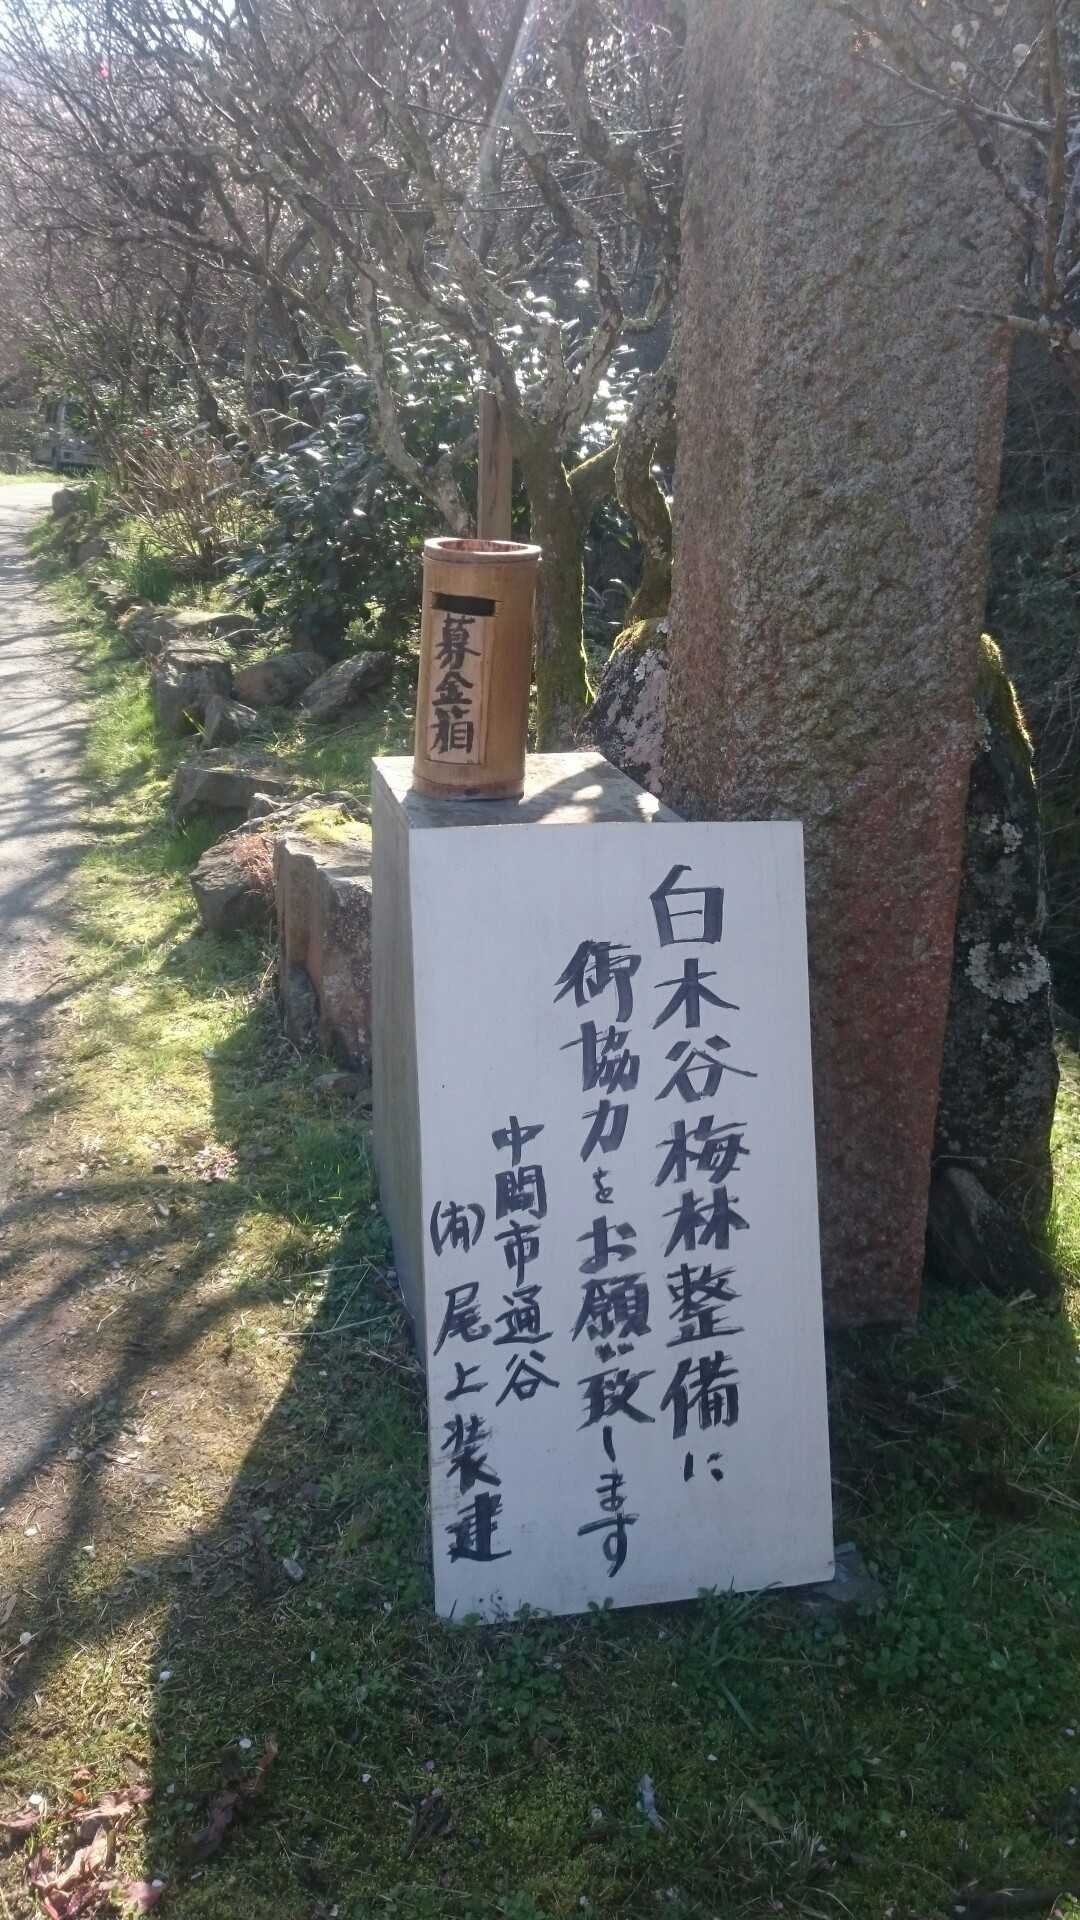 募金箱
白木谷梅林整備に
御協力をお願い致します
中間市通谷
(有)尾上装建